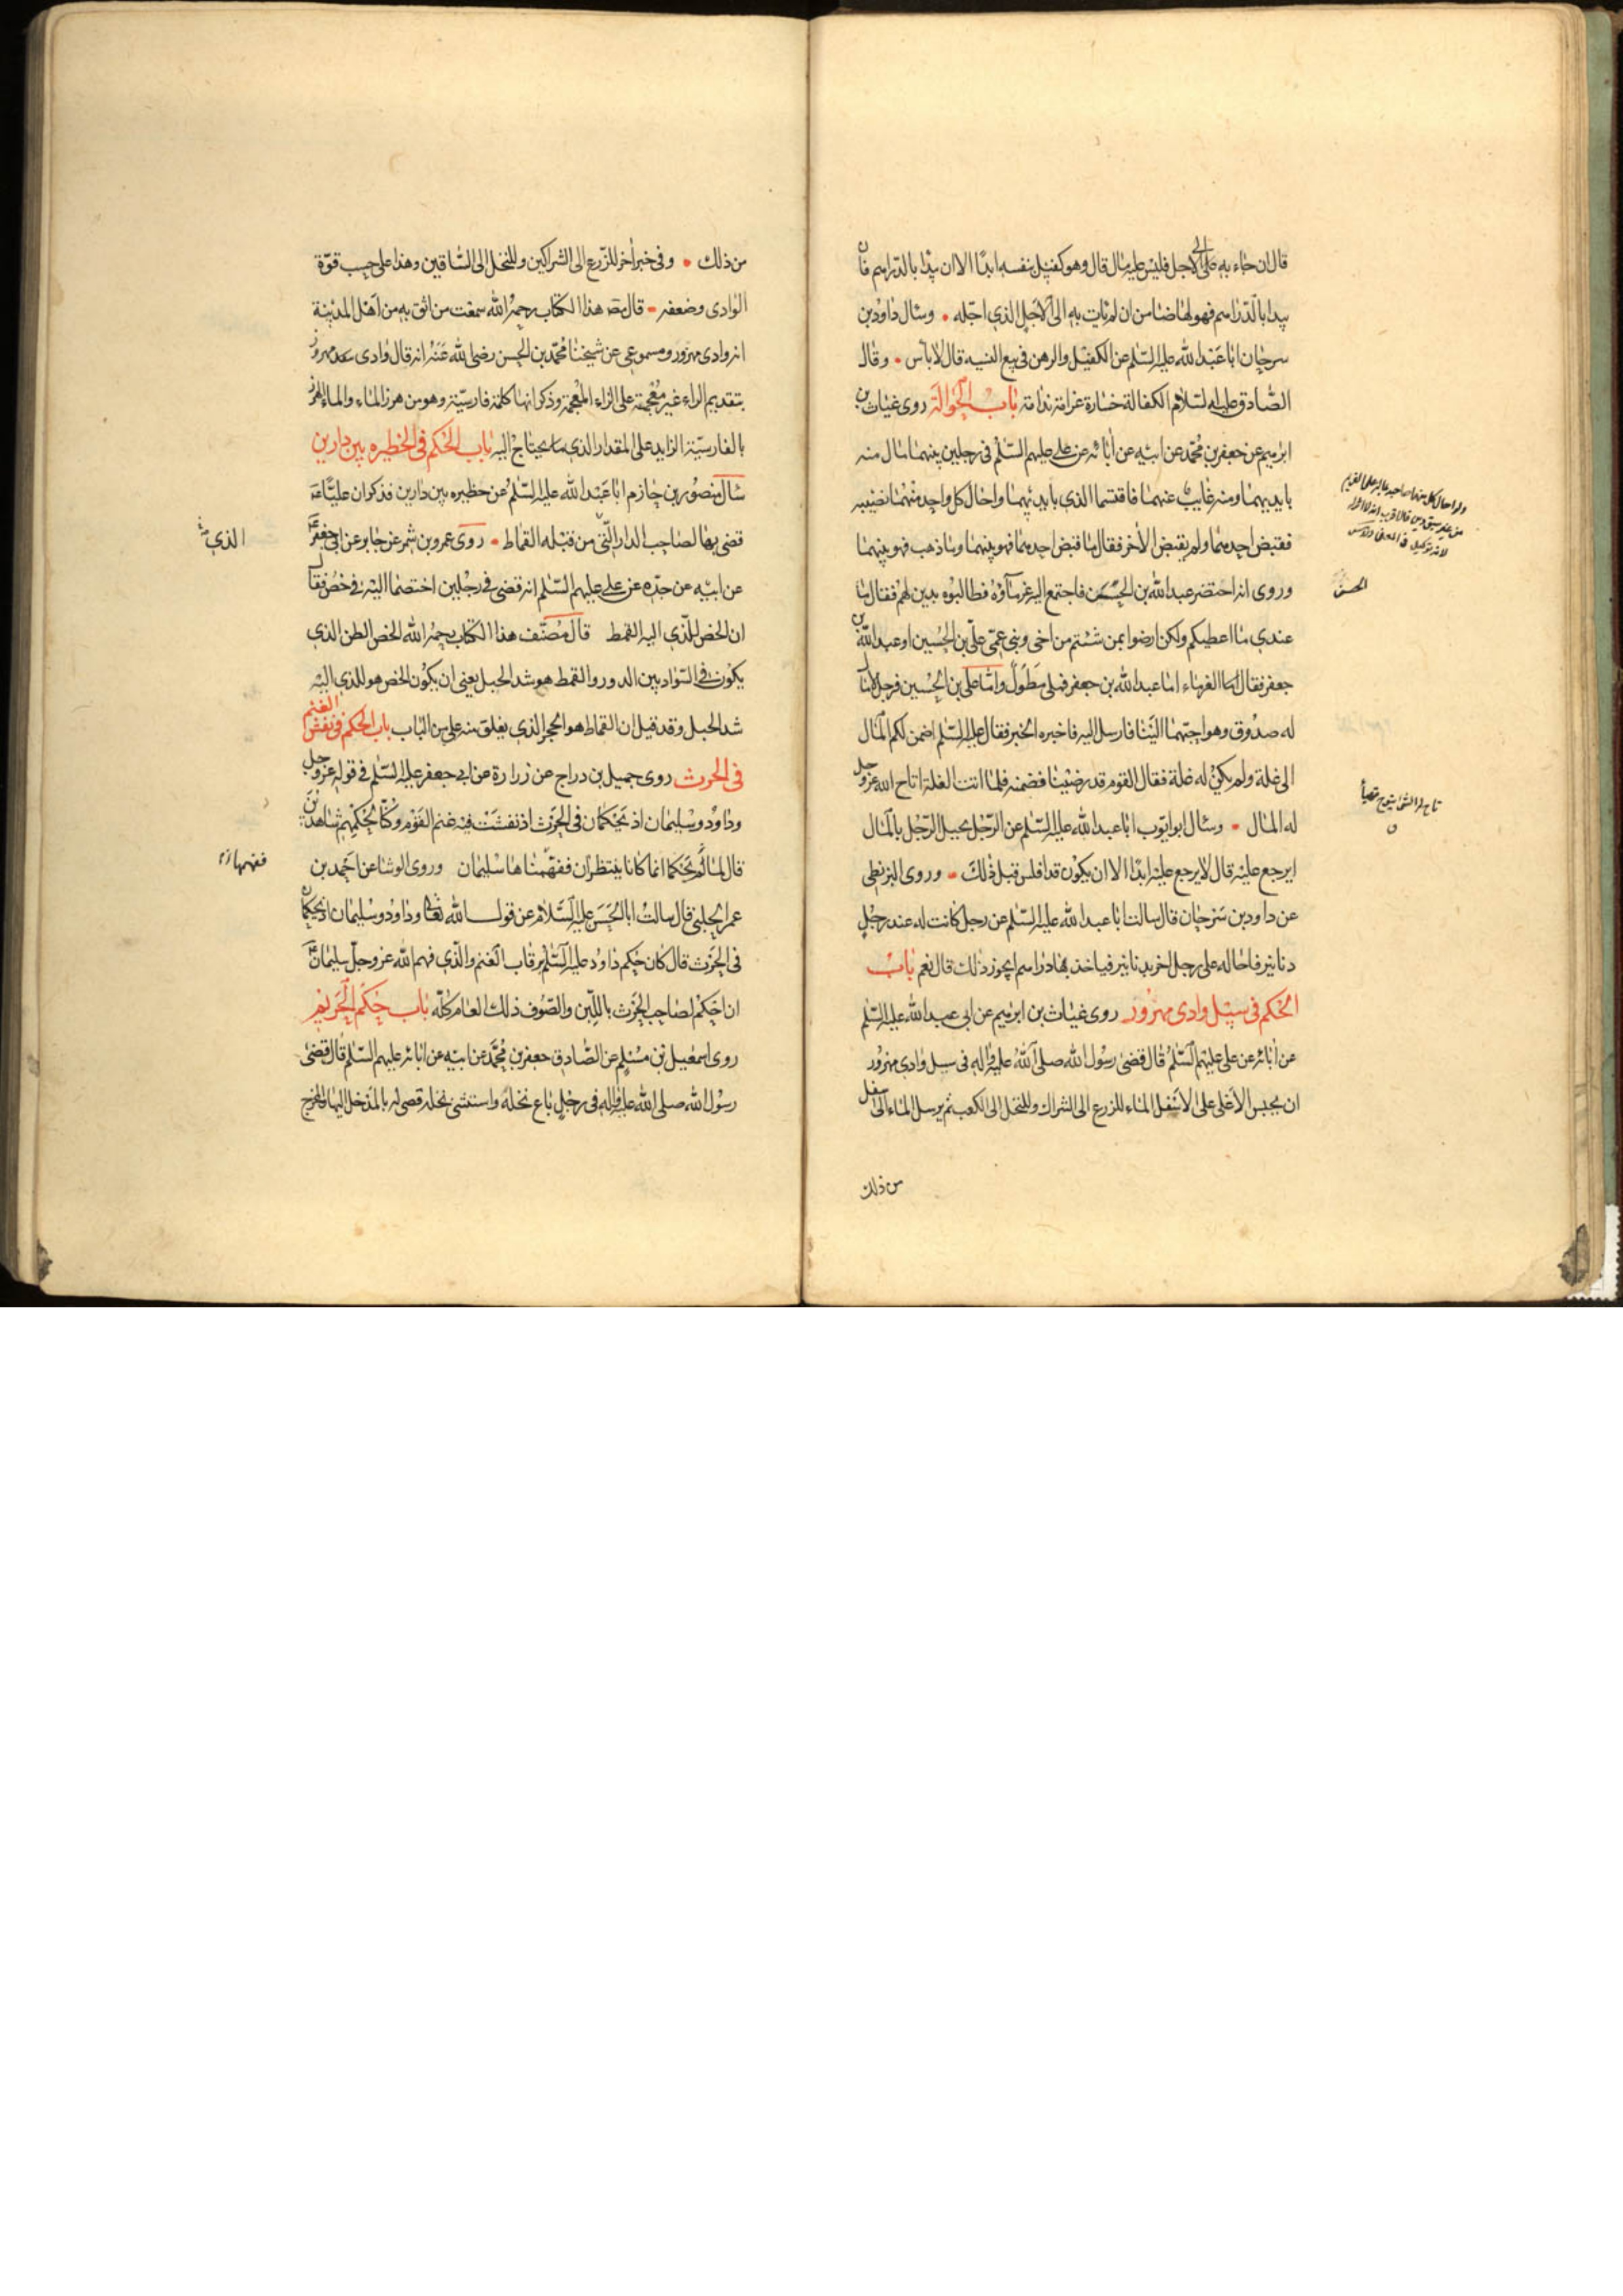 قال ان جاء به الى الاجل فليس عليه مال قال وهو كفيل بنفسه ابدًا الا ان يبدا بالدراهم فان
بدا بالدراهم فهو لها ضامن ان لم يات به الى الاجل الذى اجّله وسال داود بن
سرحان ابا عبد الله عليه السّلم عن الكفيل والرهن فى بيع النسيه قال لا باس وقال
الصّادق عليه السّلام الكفالة خسارة غرامة ندامة باب الحوالة روى غياث بن
ابرهيم عن جعفر بن محمّد عن ابيه عن ابائه عن على عليهم السّلم فى رجلين بينهما مال منه
بايديهما ومنه غايب عنهما فاقتسما الذى بايديهما واحال كل واحد منهما نصيبه
فقبض احدهما ولم يقبض الاخر فقال ما قبض احدهما فهو بينهما وما ذهب فهو بينهما
وروى انه احتضر عبد الله بن الحسن فاجتمع اليه غرماؤه فطالبوه بدين لهم فقال ما
عندى ما اعطيكم ولكن ارضوا بمن شئتم من اخى وبنى عمّى علّى بن الحسين او عبد الله بن
جعفر فقال الغرماء اما عبد الله بن جعفر فملى مطول واما على بن الحسين فرجل لا مال
له صدوق وهو احبّهما الينا فارسل اليه فاخبره الخبر فقال عليه السّلم اضمن لكم المال
الى غلة ولم يكن له غلة فقال القوم قد رضينا فضمنه فلما اتت الغلة اتاح الله عزوجل
له المال وسال ابو ايّوب ابا عبد الله عليه السّلم عن الرّجل يحيل الرّجل بالمال
ايرجع عليه قال لا يرجع عليه ابدًا الا ان يكون قد افلس قبل ذلك وروى البزنطى
عن داود بن سرحان قال سالت ابا عبد الله عليه السّلم عن رجل كانت له عند رجل
دنانير فاحاله على رجل اخر بدنانير فياخذ بها دراهم ايجوز ذلك قال نعم باب
الحكم فى سيل وادى مهزور روى غياث بن ابرهيم عن ابى عبد الله عليه السّلم
عن ابائه عن على عليهم السّلم قال قضى رسول الله صلى الله عليه واله فى سيل وادى مهزور
ان يحبس الاعلى على الاسفل الماء للزرع الى الشراك وللنخل الى الكعب ثم يرسل الماء الى اسفل
من ذلك
الحسن
من ذلك وفى خبر اخر للزرع الى الشراكين وللنخل الى الساقين وهذا على حسب قوّة
الوادى وضعفه قال مص هذا الكتاب رحمه الله سمعت من اثق به من اهل المدينة
انه وادى مهزور ومسموعى عن شيخنا محمّد بن الحسن رضى الله عنه انه قال وادى مهروز
بتقديم الراء غير معجمة على الزاء المعجمة وذكر انها كلمة فارسيّة وهو من هرز الماء والماء الهرز
بالفارسيّة الزايد على المقدار الذى يحتاج اليه باب الحكم فى الحظيره بين دارين
سال منصور بن حازم ابا عبد الله عليه السّلم عن حظيره بين دارين فذكر ان عليّا عه
قضى بها لصاحب الدار التى من قبله القماط روى عمرو بن شمر عن جابر عن ابى جعفر
عن ابيه عن جدّه عن على عليهم السّلم انه قضى فى رجلين اختصما اليه فى خص فقال
ان الخص للّذى اليه القمط قال مصنّف هذا الكتاب رحمه الله الخص الطن الذى
يكون فى السّواد بين الدور والقمط هو شد الحبل يعنى ان يكون الخص هو للذى اليه
شد الحبل وقد قيل ان القماط هو الحجر الذى يغلق منه على من الباب باب الحكم فى نفش الغنم
فى الحرث روى جميل بن دراج عن زرارة عن ابى جعفر عليه السّلم فى قوله عزوجل
وداود وسليمان اذ يحكمان فى الحرث اذ نفشت فيه غنم القوم وكنّا لحكمهم شاهدين
قال لم يحكما انما كانا يتنظران ففهّمناها سليمان وروى الوشا عن احمد بن
عمر الحلبى قال سالت ابا الحسن عليه السّلام عن قول الله تعالى وداود وسليمان اذ يحكمان
فى الحرث قال كان حكم داود عليه السّلم رقاب الغنم والّذى فهم الله عز وجلّ سليمان
ان احكم لصاحب الحرث باللبن والصّوف ذلك العام كلّه باب حكم الحريم
روى اسمعيل بن مسلم عن الصّادق جعفر بن محمّد عن ابيه عن ابائه عليهم السّلم قال قضى
رسول الله صلى الله عليه واله فى رجل باع نخله واستثنى نخله قضى له بالمدخل اليها والمخرج
الذى
ففهمها